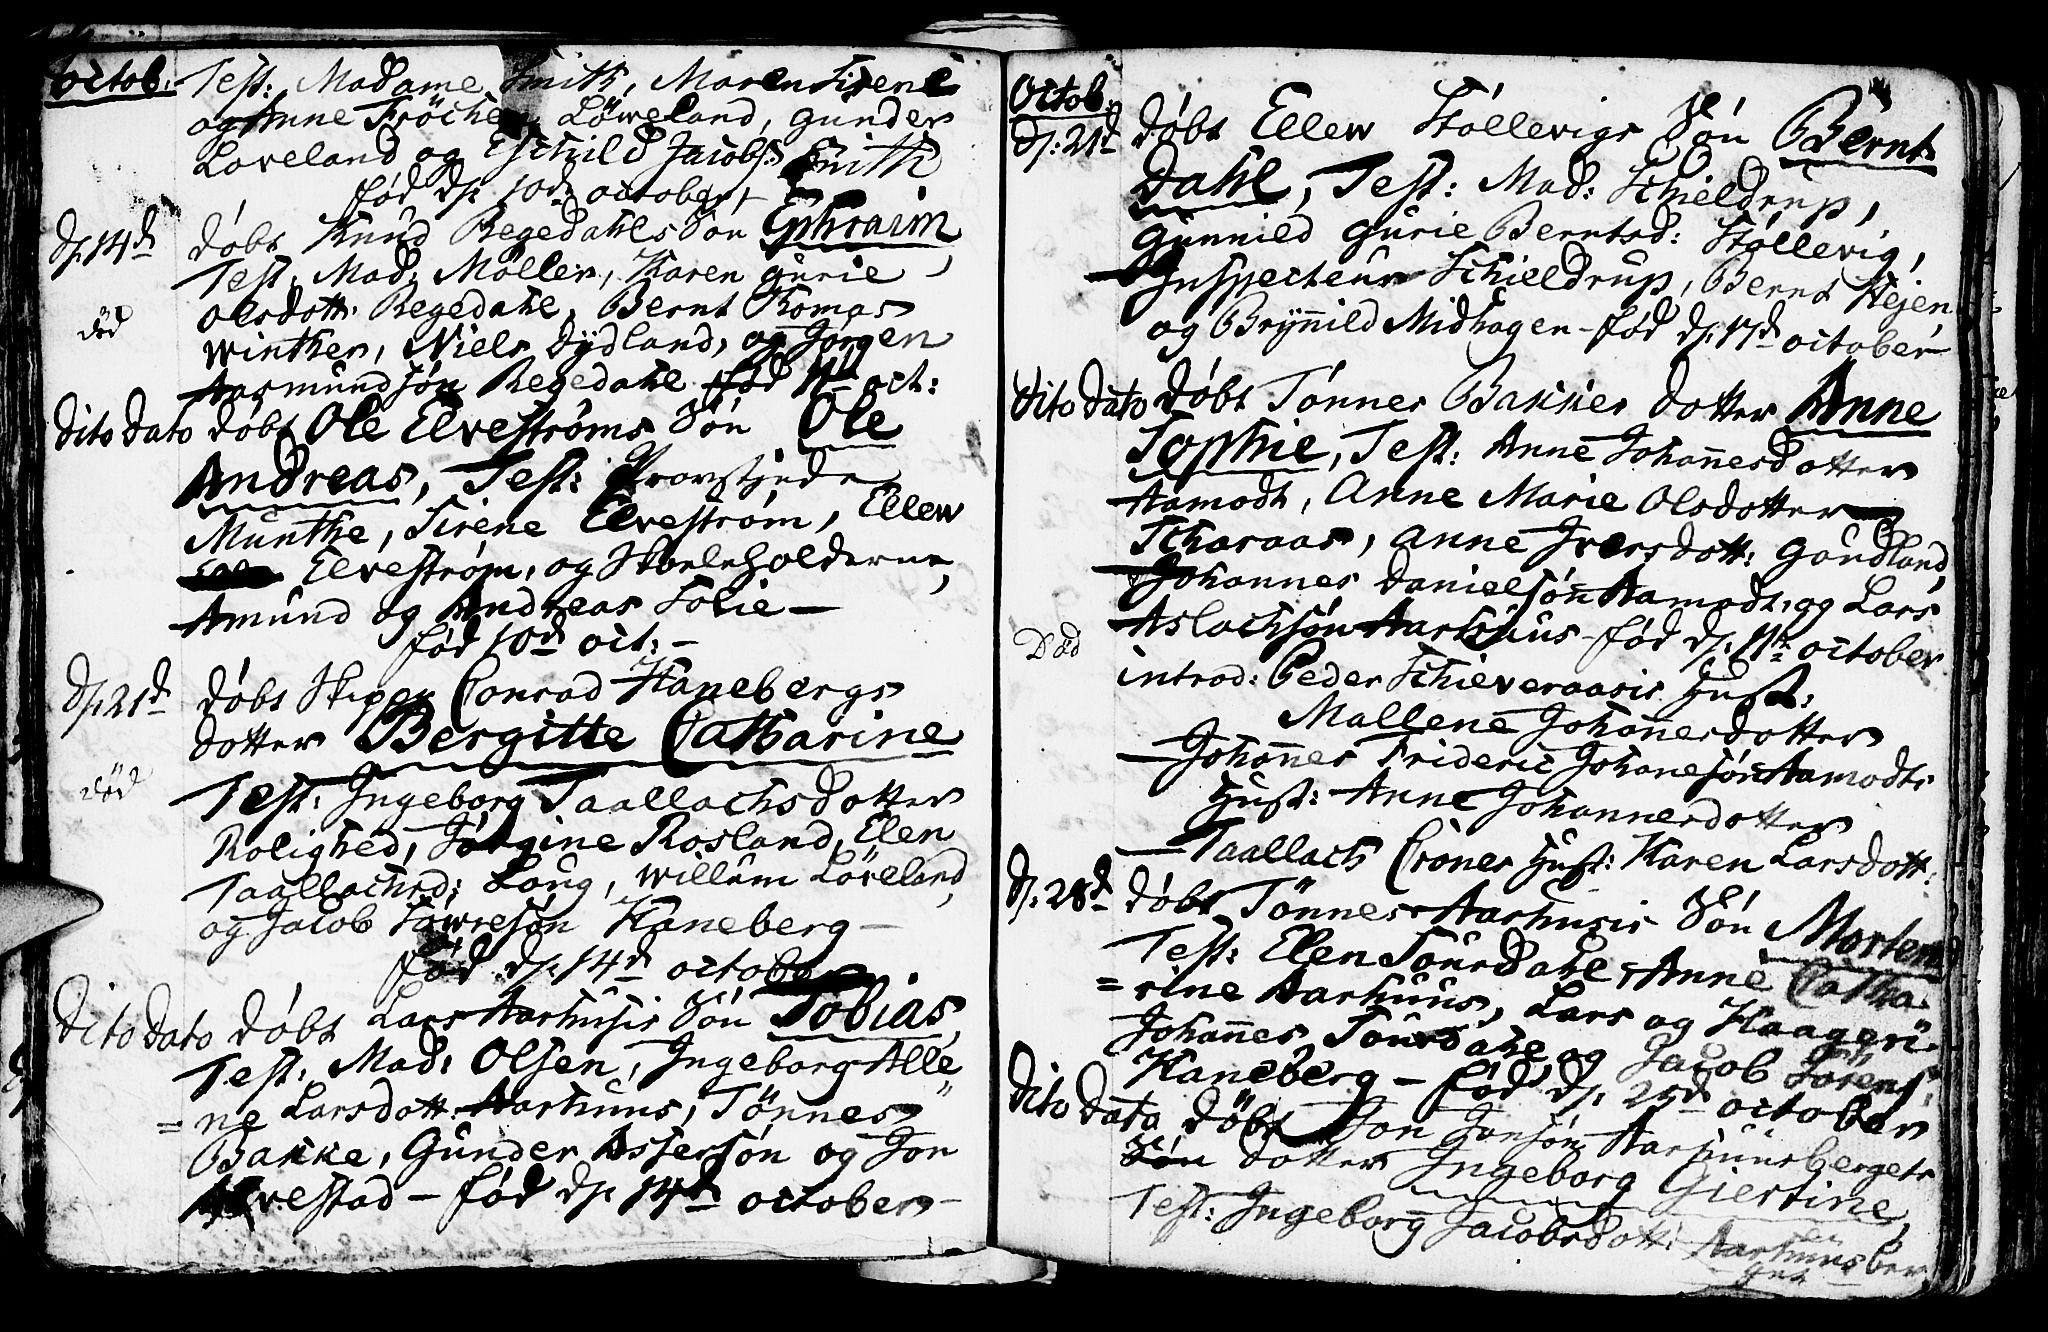 Octob. Test: Madame Smith, Maren Sirene
og Anne Fröchen Löweland, Gunder
Loveland og Eschild Jacobs: Smith
fød d: 10de october
d: 14de døbt Knud Regedahls Søn Ephraim
Test: Mad: Møller, Karen Gurie
død Olsdott: Regedahl, Bernt Thomas
Winther, Niels Dydland, og Jørgen
Aasmundsøn Regedahl fød 11te oct:
Dito Dato døbt Ole Elvestrøms Søn Ole
Andreas, Test: Provstinde
Munthe, Sirene Elvestrøm, Ellew
Elvestrøm, og Skoleholderne,
Amund og Andreas Solie —
fød 10de oct: —
d: 21de døbt Skiper Conrad Hanebergs
dotter Bergitte Catharine
død Test: Ingeborg Taallachsdotter
Rolighed, Jørgine Rosland, Elen
Taallachsd: Loug, Willum Löveland,
og Jacob Sørresøn Haneberg —
fød d: 14de october
Dito Dato døbt Lars Aarhusis Søn Tobias,
Test: Mad: Olsen, Ingeborg Alle
= ne Larsdott: Aarhuus, Tønnes
Bakke, Gunder Assersøn og Jon
Alvestad — fød d: 14de october —
Octob.
d: 21de døbt Ellew Stöllevigs Søn Bernt
Dahl, Test: Mad: Schieldrup,
Gunnild Gurie Berntsd: Støllevig,
Inspecteur Schieldrup, Bernt Stejen
og Brÿnild Midhagen — fød d: 17de october
Dito Dato døbt Tønnes Bakkes dotter Anne
Sophie, Test: Anne Johannesdotter
Aamodt, Anne Marie Olsdotter
Scharaas, Anne Iversdott: Goudland,
Johannes Danielsøn Aamodt, og Lars
Aslachsøn Aarhuus — fød d: 11te october
Død introd: Peder Schieveraasis Hust:
Mallene Johannesdotter
— Johannes Frideric Johanesøn Aamodts
Hust: Anne Johannesdotter
— Taallach Crones Hust: Karen Larsdott:
d: 28de døbt Tønnes Aarhusis Søn Morten
Test: Elen Tourdahl, Anne Catha-
= rine Aarhuus, Lars og Haageri-
Johannes Tourdahl og Jacob Sörens:
Haneberg — fød d: 25de october
Dito Data döbt Jon Jonsøn Aarhuusbergets
Søn dotter Ingeborg Giertine,
Test: Ingeborg Jacobsdott: Aarhuusber
get